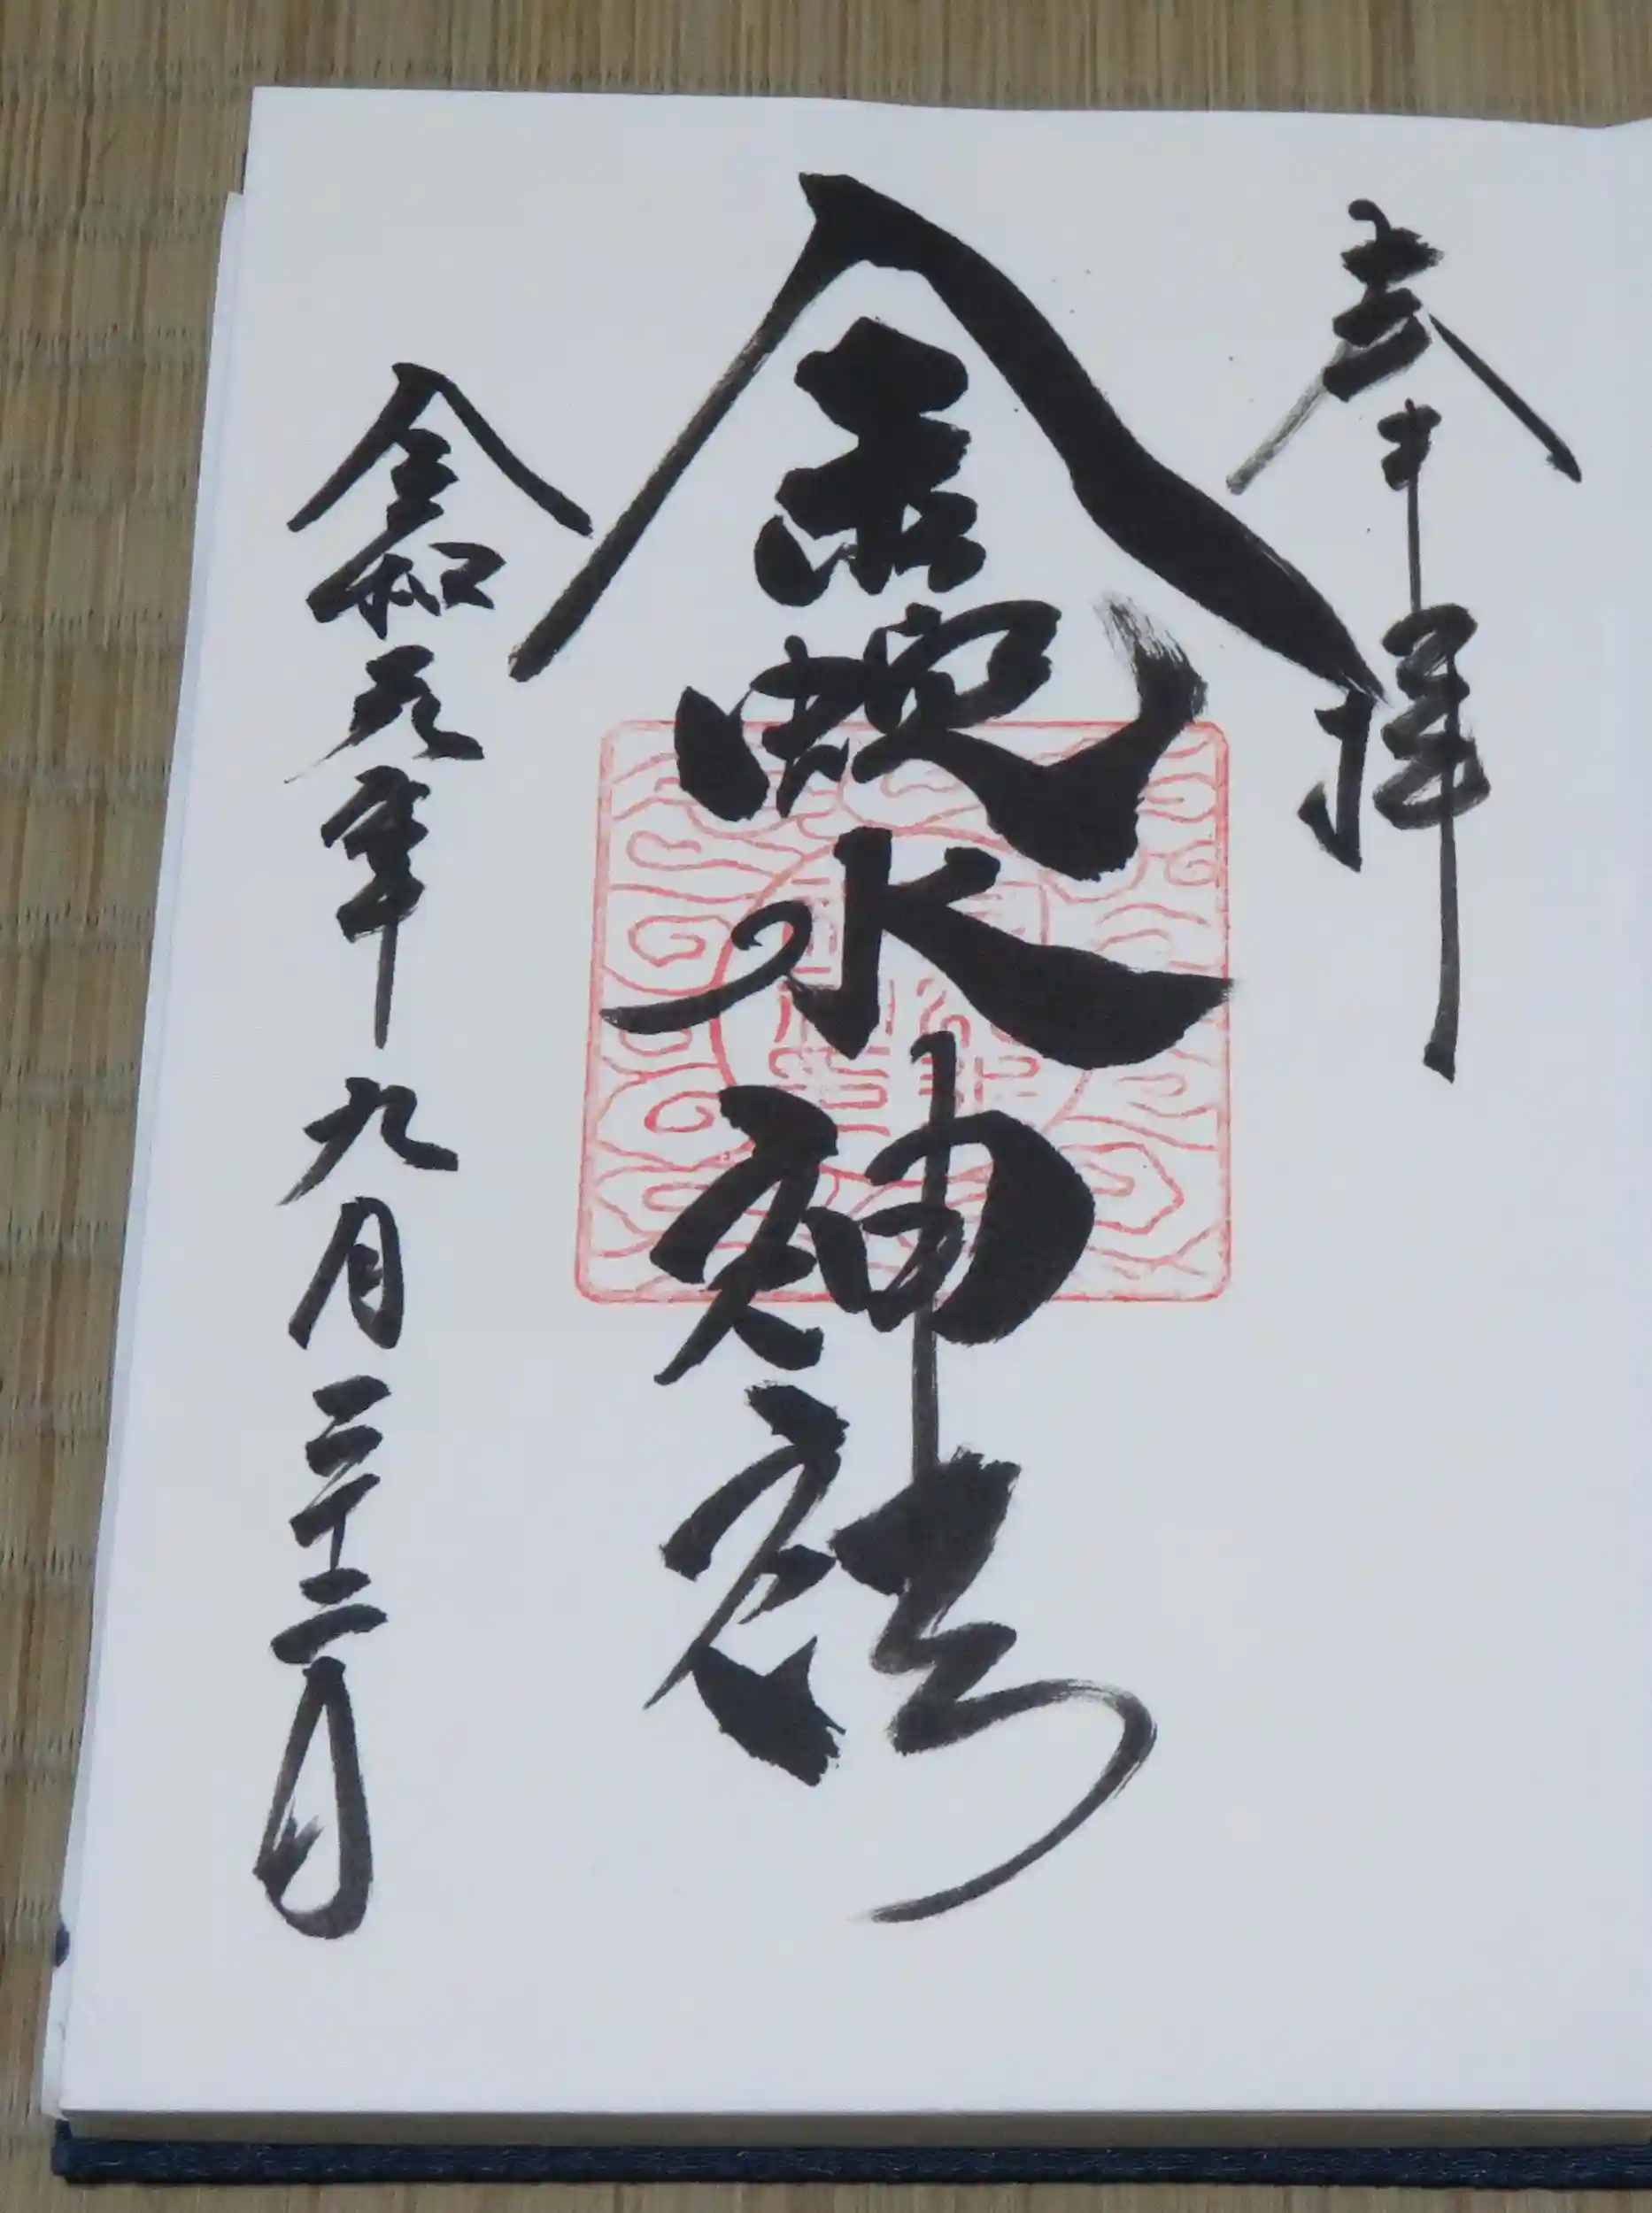 奉拝
金蛇水神社
令和元年九月二十二日